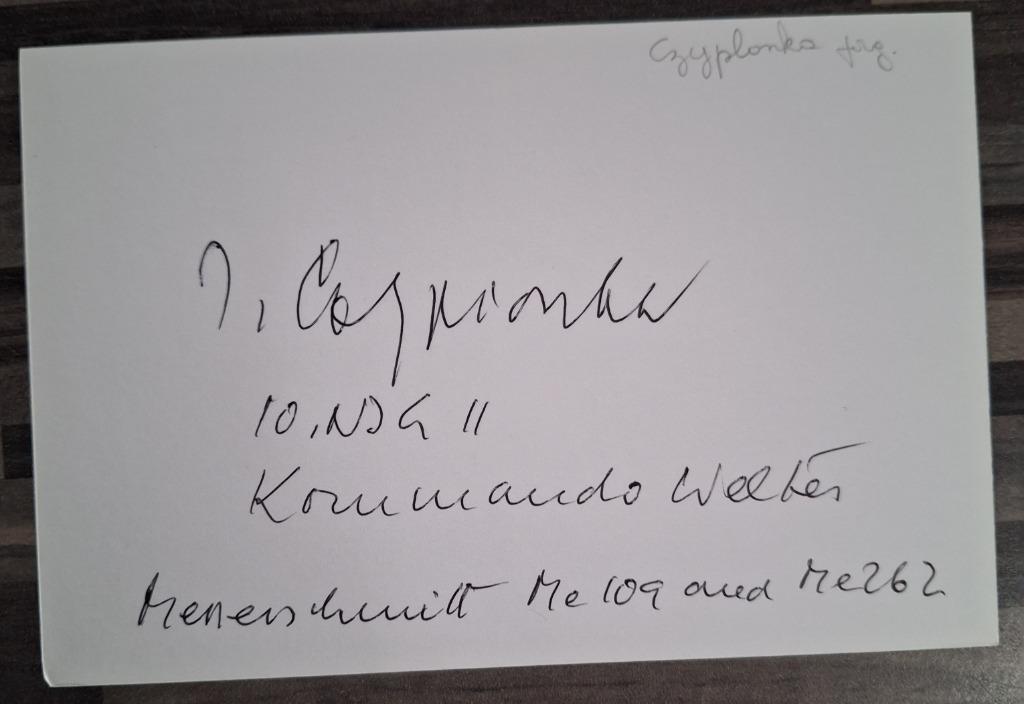 Czyplonka Jörg.
J. Czypionka
10. NJG 11
Kommando Welter
Messerschmitt Me 109 and Me 262